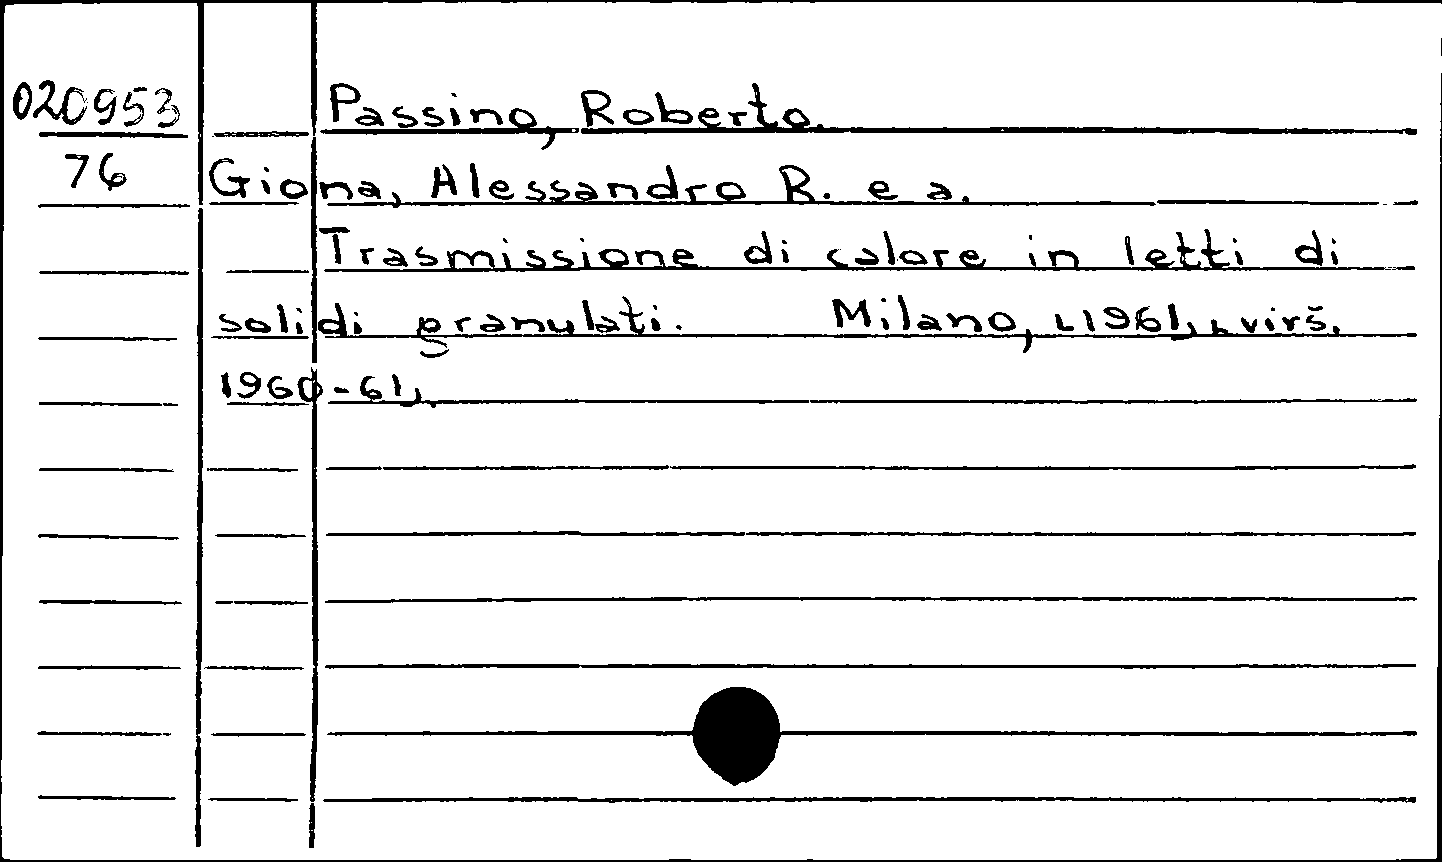 020953 Passino, Roberto.
76 Giona, Alessandro R. e a.
Trasmissione di calore in letti di
solidi granulati. Milano, [1961, [virš.
1960-61].